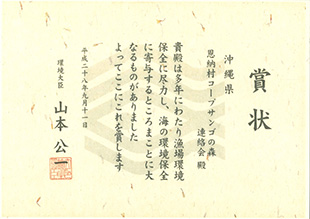 賞状
沖縄県
恩納村コープサンゴの森
連絡会 殿
貴殿は多年にわたり漁場環境
保全に尽力し、海の環境保全
に寄与するところまことに大
なるものがありました
よってここにこれを賞します
平成二十八年九月十一日
環境大臣
山本公一